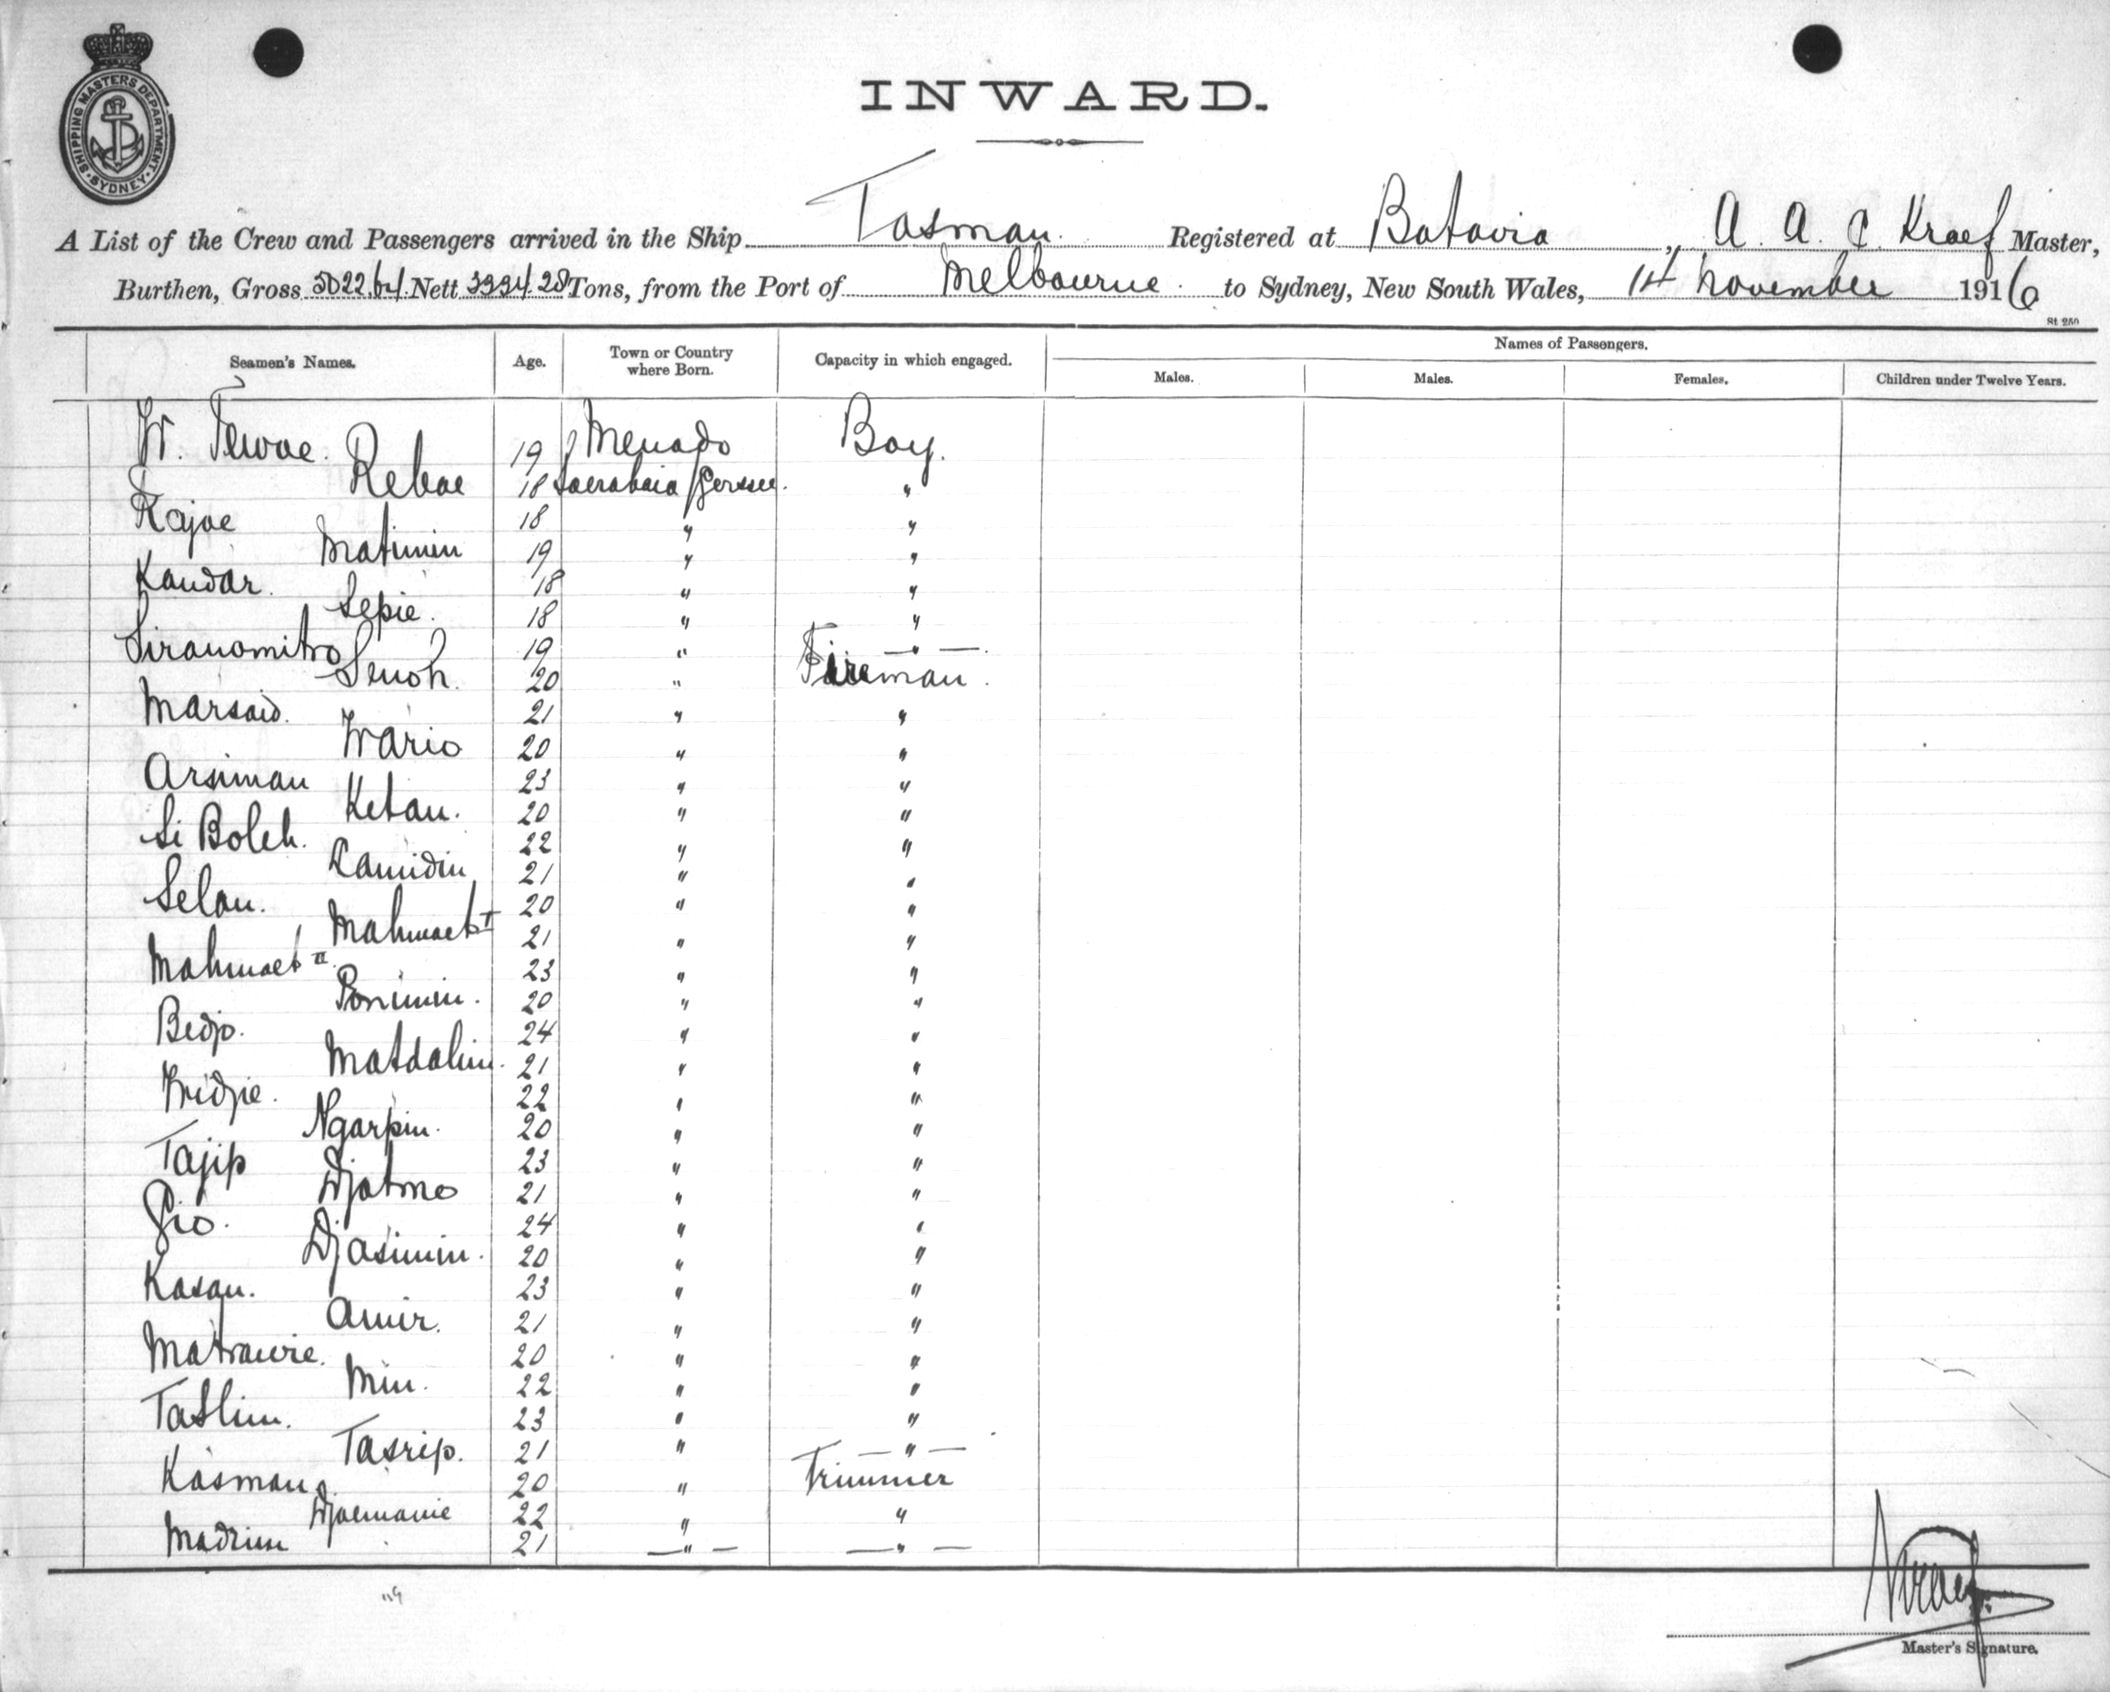 SHIPPING MASTERS DEPARTMENT. SYDNEY.
INWARD.
A List of the Crew and Passengers arrived in the Ship Tasman. Registered at Batavia, A. A. C. Kraef Master,
Burthen, Gross 5022.64 Nett Tons, from the Port of Melbourne. to Sydney, New South Wales, 14 November 1916
St 250
Seamen's Names. Age. Town or Country where Born. Capacity in which engaged. Names of Passengers.
Males. Males. Females. Children under Twelve Years.
W. Tewae. 19 Menado Boy.
Rebae 18 Soerabaia/Gersee. "
Kajae 18 " "
Matimin 19 " "
Kandar. 18 " "
Sepie. 18 " "
Siranomitro 19 " — " —
Senoh. 20 " Fireman.
Marsaid. 21 " "
Wario 20 " "
Arsiman 23 " "
Ketan. 20 " "
Si Boleh. 22 " "
Ramidin 21 " "
Selan. 20 " "
Mahmaet I 21 " "
Mahmaet II 23 " "
Ponimin. 20 " "
Bedjo. 24 " "
Matdalim. 21 " "
Wridjie. 22 " "
Ngarpin. 20 " "
Tajip 23 " "
Djatmo 21 " "
Gio. 24 " "
Djasimin. 20 " "
Kasan. 23 " "
Amir. 21 " "
Matrawie. 20 " "
Min. 22 " "
Taslim. 23 " "
Tasrip. 21 " — " —
Kasman. 20 " Trimmer
Djaemanie 22 " "
Madrim 21 — " — — " —
Master's Signature.